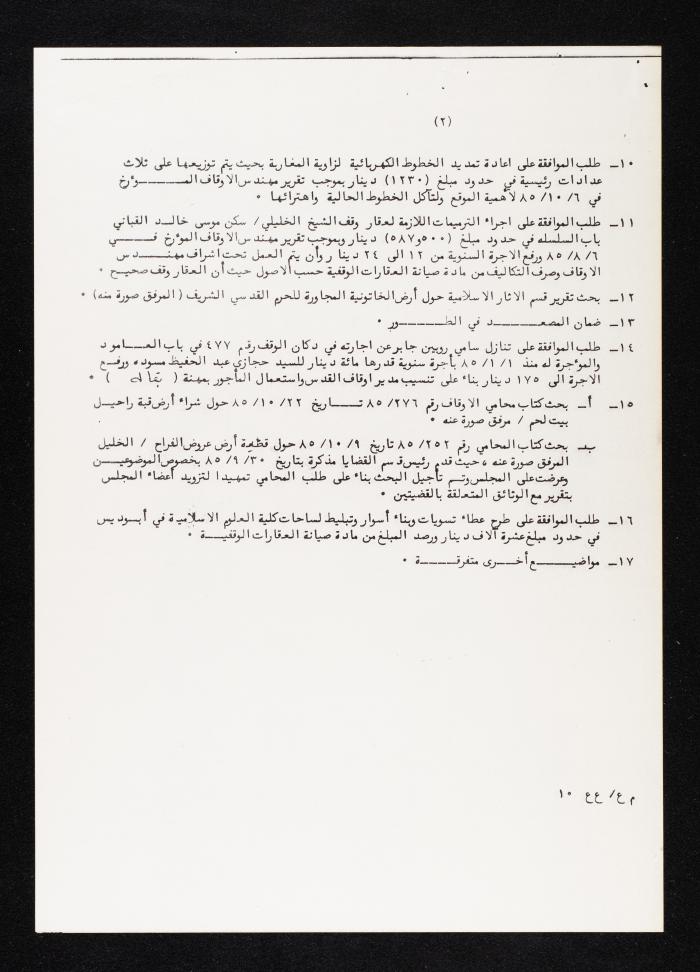 (٢)
١٠ـ طلب الموافقة على اعادة تمديد الخطوط الكهربائية لزاوية المغاربة بحيث يتم توزيعها على ثلاث
عدادات رئيسية في حدود مبلغ (١٢٣٠) دينار بموجب تقرير مهندس الاوقاف المـــــؤرخ
في ٦/ ١٠/ ٨٥ لأهمية الموقع ولتآكل الخطوط الحالية واهترائها ٠
١١ـ طلب الموافقة على اجراء الترميمات اللازمة لعقار وقف الشيخ الخليلي/ سكن موسى خالد القباني
باب السلسله في حدود مبلغ (٥٠٠و٥٨٧) دينار وبموجب تقرير مهندس الاوقاف المؤرخ فـــــي
٦/ ٨/ ٨٥ ورفع الاجرة السنوية من ١٢ الى ٢٤ دينار وأن يتم العمل تحت اشراف مهنــــدس
الاوقاف وصرف التكاليف من مادة صيانة العقارات الوقفية حسب الاصول حيث أن العقار وقف صحيح ٠
١٢ـ بحث تقرير قسم الاثار الاسلامية حول أرض الخاتونية المجاورة للحرم القدسي الشريف (المرفق صورة منه) ٠
١٣ـ ضمان المصعـــــد في الطـــــور ٠
١٤ـ طلب الموافقة على تنازل سامي روبين جابر عن اجارته في دكان الوقف رقم ٤٧٧ في باب العــامود
والمؤجرة له منذ ١/ ١/ ٨٥ بأجرة سنوية قدرها مائة دينار للسيد حجازي عبد الحفيظ مسوده ورفـع
الاجرة الى ١٧٥ دينار بناء على تنسيب مدير اوقاف القدس واستعمال المأجور بمهنة ( بقاله ) ٠
١٥ـ أـ بحث كتاب محامي الاوقاف رقم ٢٧٦/ ٨٥ تـــاريخ ٢٢/ ١٠/ ٨٥ حول شراء أرض قبة راحيــل
بيت لحم / مرفق صورة عنه ٠
بـ بحث كتاب المحامي رقم ٢٥٢/ ٨٥ تاريخ ٩/ ١٠/ ٨٥ حول قطعة أرض عروض الفراح / الخليل
المرفق صورة عنه ، حيث قدم رئيس قسم القضايا مذكرة بتاريخ ٣٠/ ٩/ ٨٥ بخصوص الموضوعيـــن
وعرضت على المجلس وتــم تأجيل البحث بناء على طلب المحامي تمهيدا لتزويد أعضاء المجلس
بتقرير مع الوثائق المتعلقة بالقضيتين ٠
١٦ـ طلب الموافقة على طرح عطاء تسويات وبناء أسوار وتبليط لساحات كلية العلوم الاسلامية في أبوديس
في حدود مبلغ عشرة آلاف دينار ورصد المبلغ من مادة صيانة العقارات الوقفيـــة ٠
١٧ـ مواضيـــــع أخــرى متفرقـــــة ٠
م ع/ ع ع ١٠